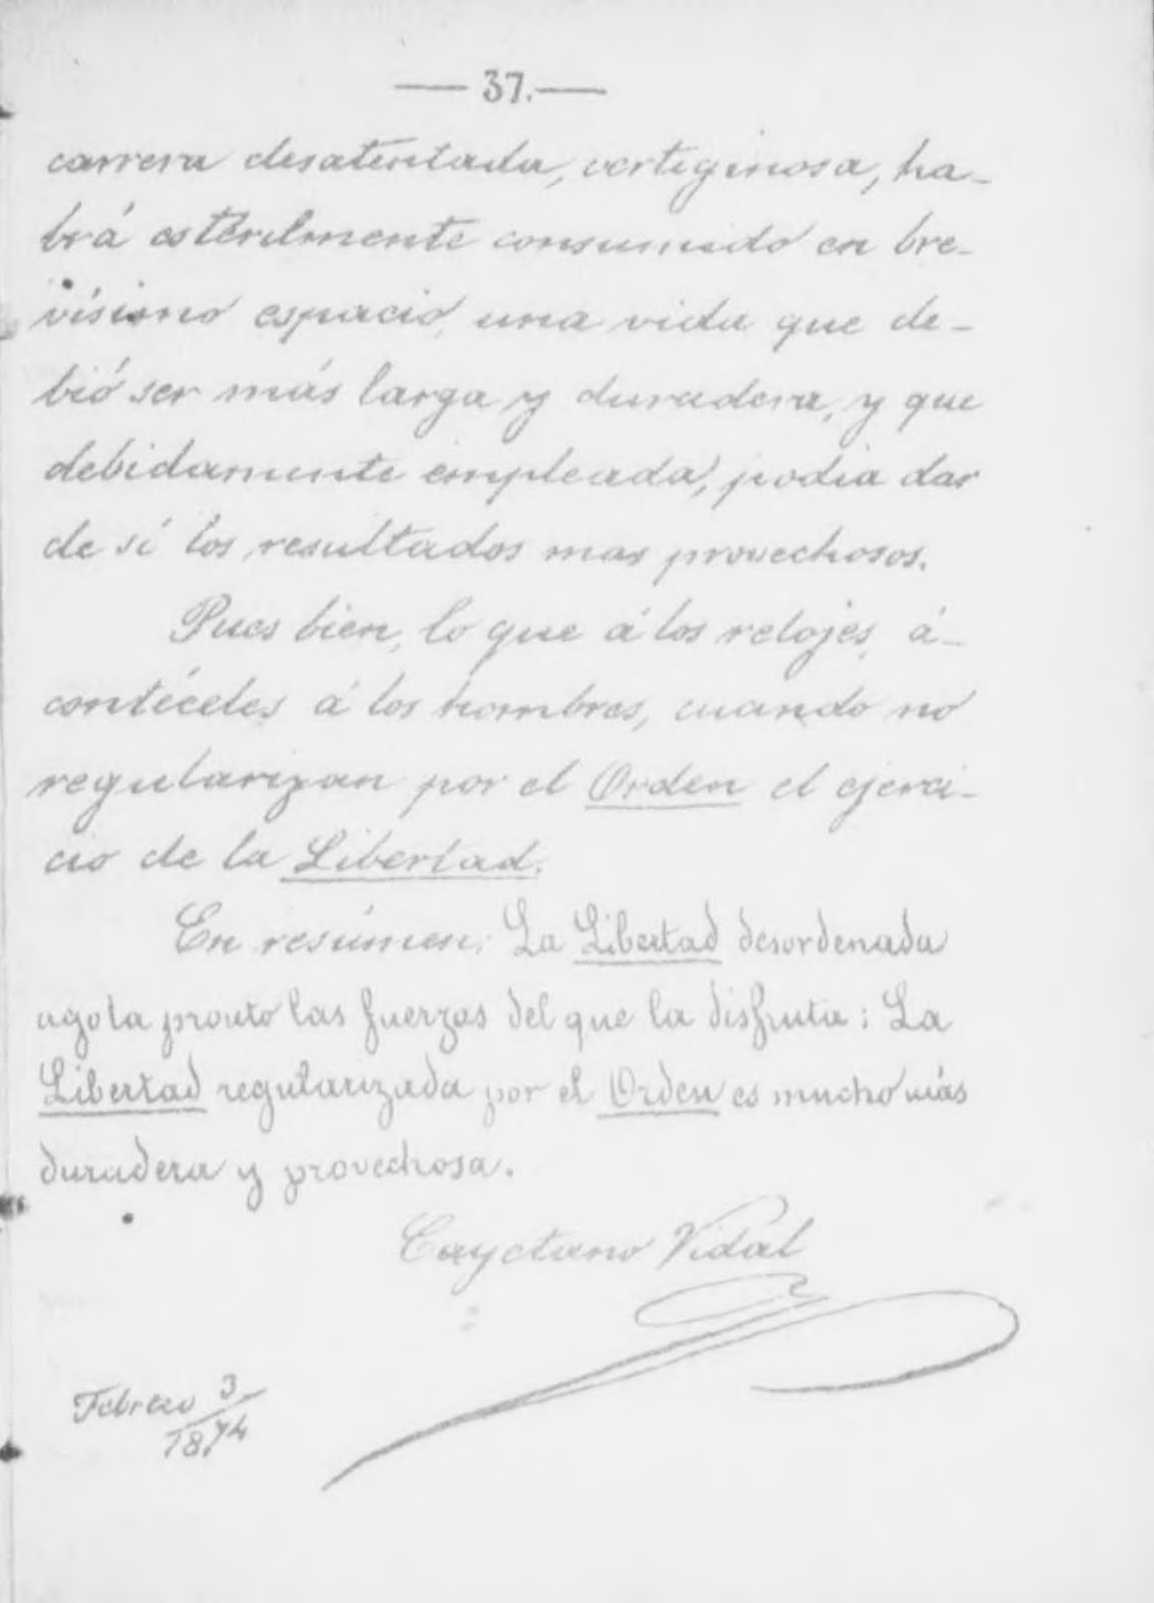 — 37. —
carrera desatentada, vertiginosa, ha-
brá estérilmente consumido en bre-
vísimo espacio, una vida que de-
bió ser más larga y duradera, y que
debidamente empleada, podia dar
de sí los resultados mas provechosos.
Pues bien, lo que á los relojes, á-
contéceles á los hombres, cuando no
regularizan por el Orden el ejerci-
cio de la Libertad.
En resúmen: La Libertad desordenada
agota pronto las fuerzas del que la disfruta; La
Libertad regularizada por el Orden es mucho más
duradera y provechosa.
Cayetano Vidal
Febrero 3/1874